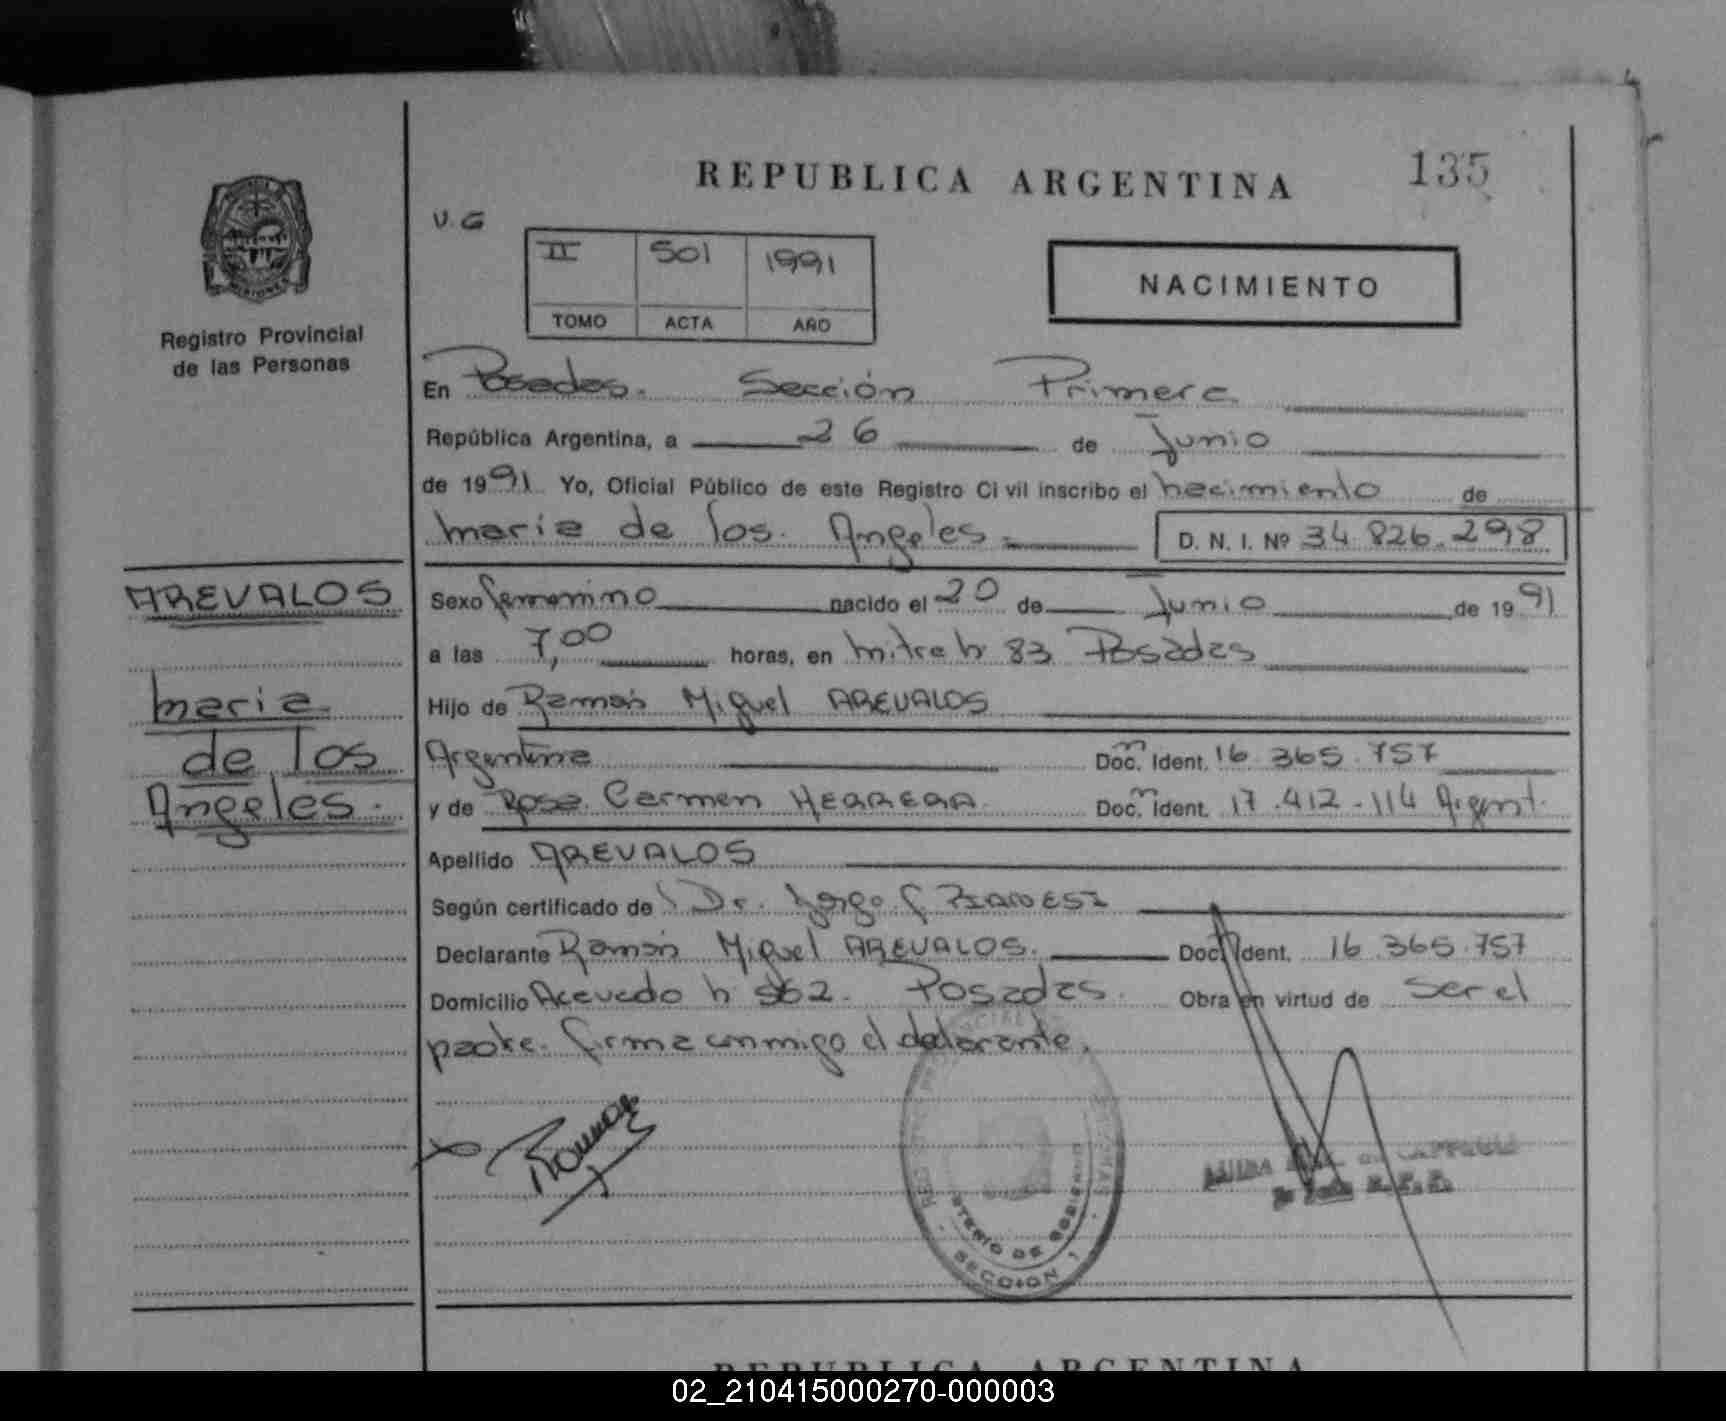 REPUBLICA ARGENTINA
135
V. G
II 501 1991
TOMO ACTA AÑO
NACIMIENTO
Registro Provincial
de las Personas
En Posadas. Sección Primera
República Argentina, a 26 de Junio
de 1991 Yo, Oficial Público de este Registro Civil inscribo el nacimiento de
maria de los Angeles. D. N. I. Nº 34.826.298
AREVALOS
maria
de los
Angeles.
Sexo femenino nacido el 20 de Junio de 1991
a las 7,00 horas, en mitre n 83 Posadas
Hijo de Ramón Miguel AREVALOS
Argentina Docm. Ident. 16.365.757
y de Rosa Carmen HERRERA. Docm. Ident. 17.412.114 Argent.
Apellido AREVALOS
Según certificado de Dr. Jorge
Declarante Ramón Miguel AREVALOS. Doc. Ident. 16.365.757
Domicilio Acevedo n 562. Posadas. Obra en virtud de ser el
padre. firma conmigo el declarante.
SECCION 1
REPUBLICA ARGENTINA
02_210415000270-000003